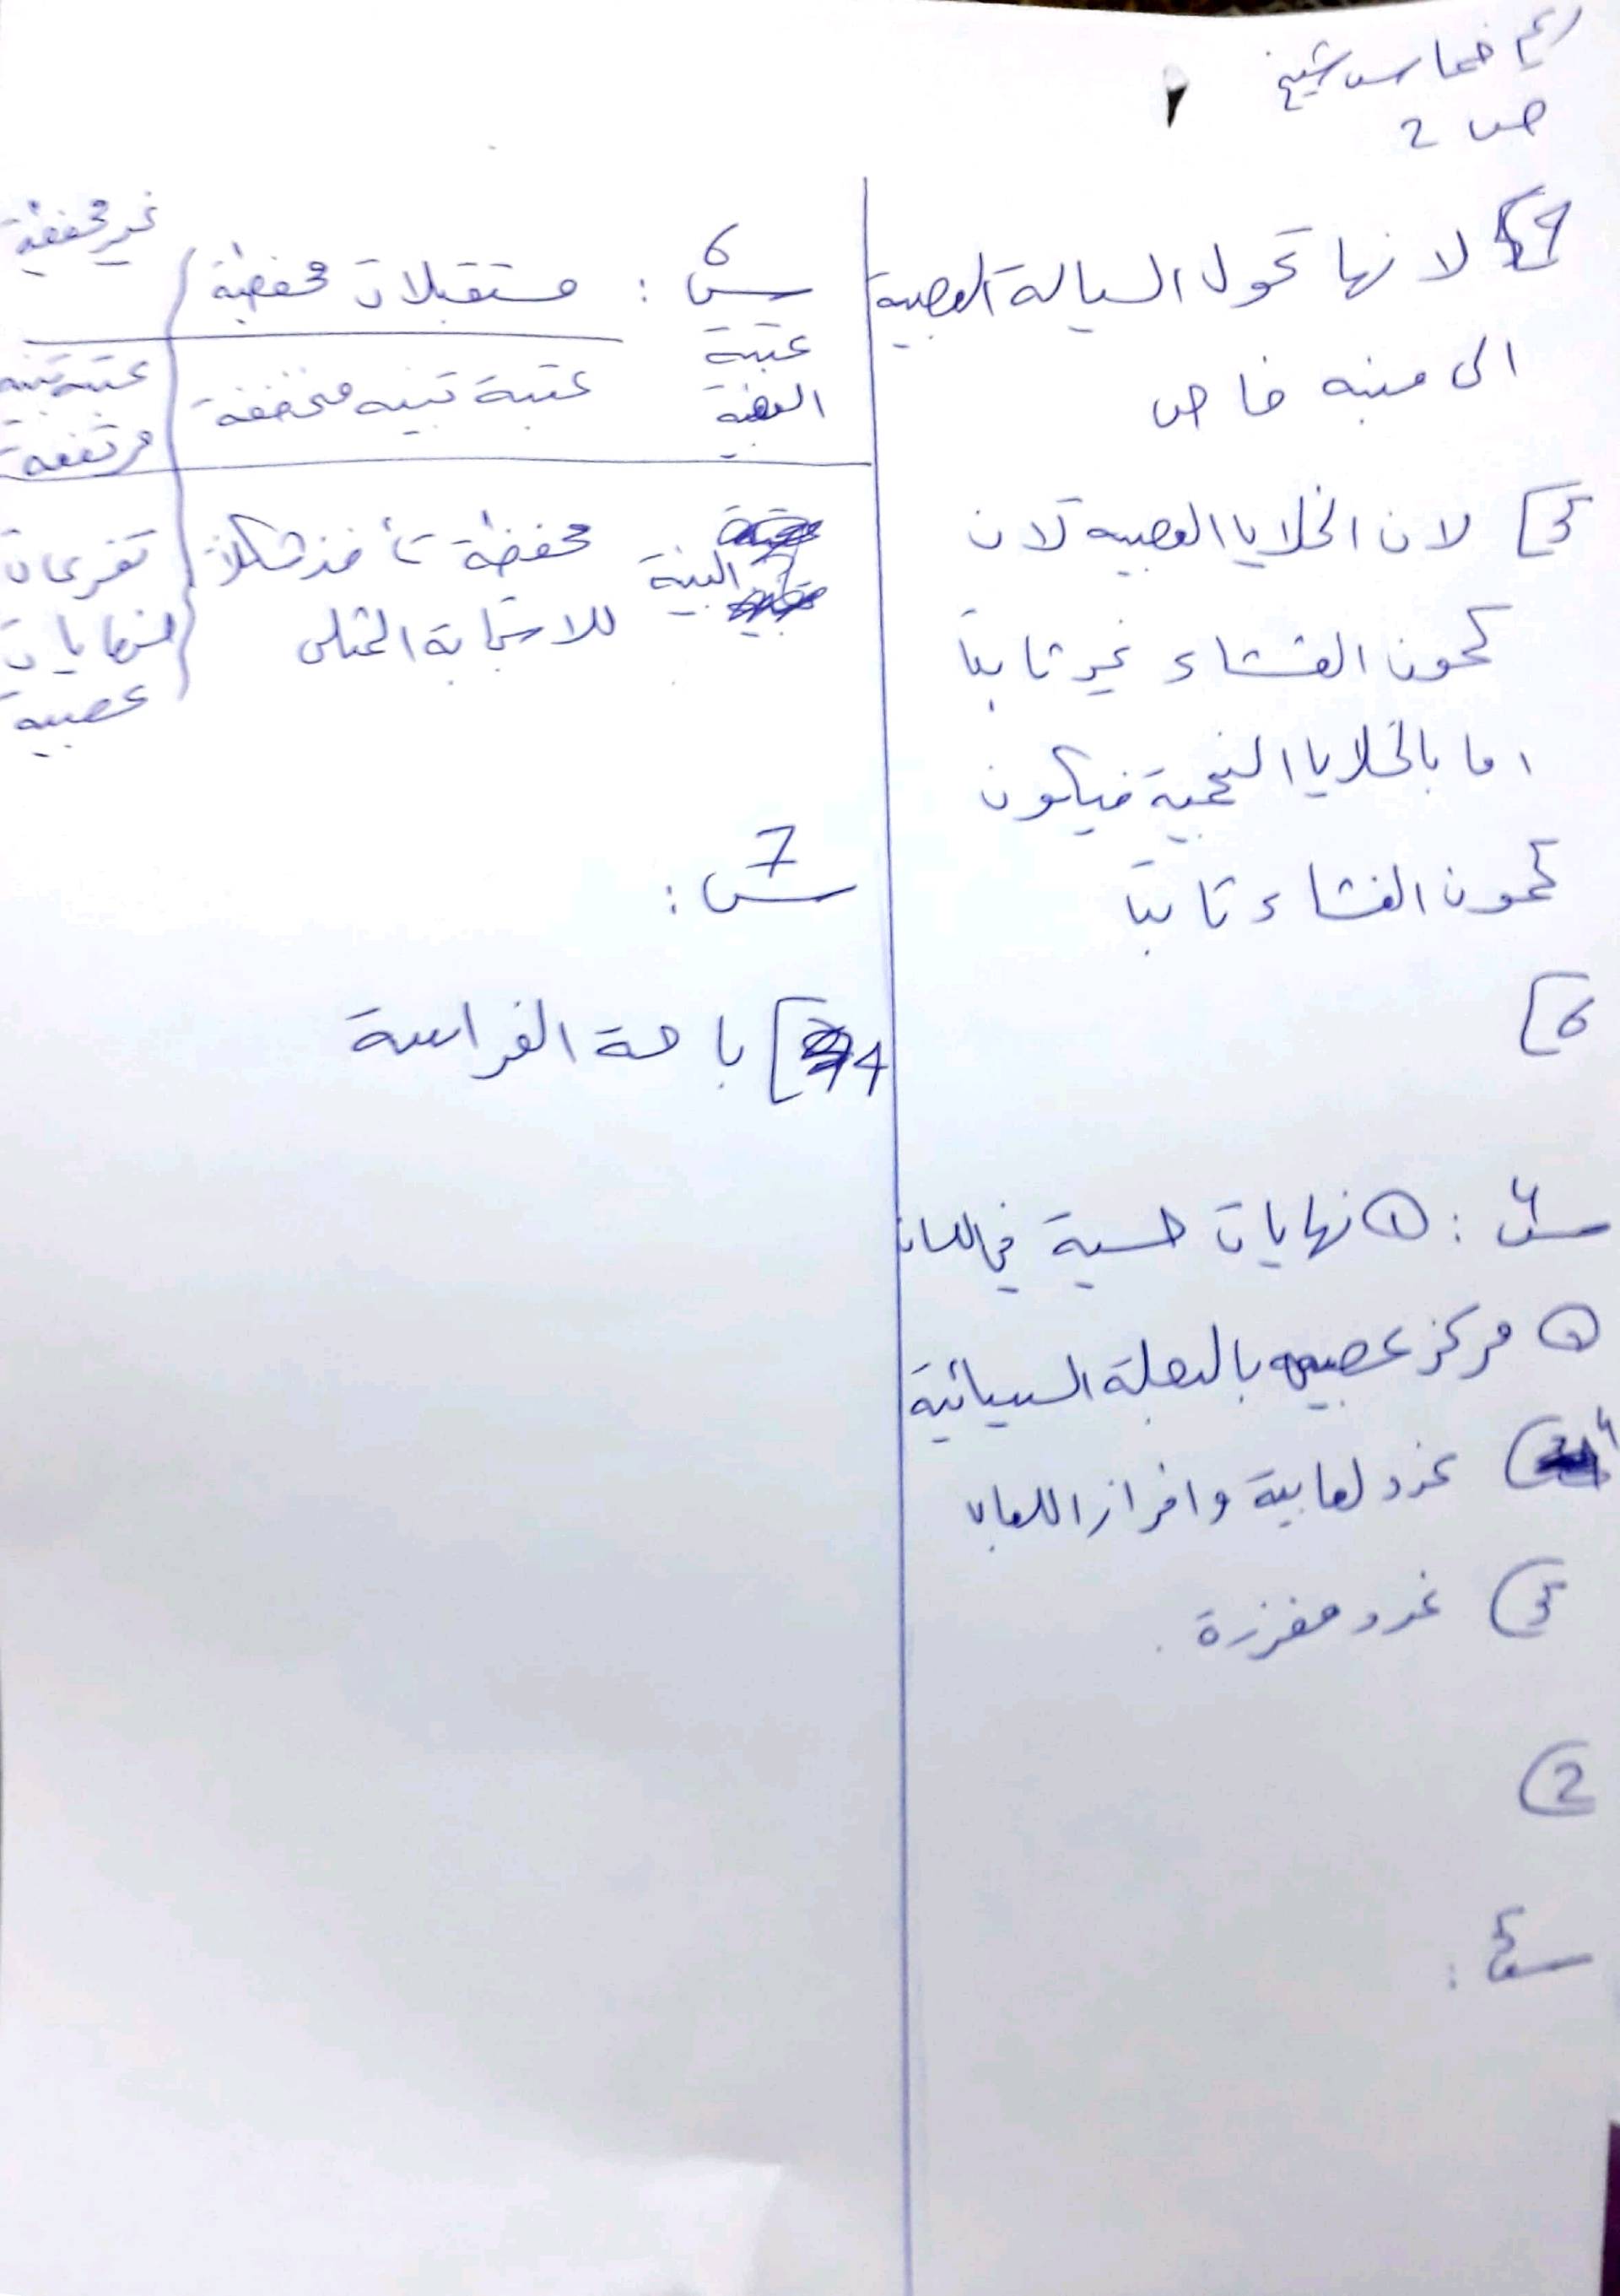 ص 2
4] لانها تحول السيالة العصبية
الى منبه خاص
5] لان الخلايا العصبية لان
كمون الغشاء غير ثابتا
اما بالخلايا النجمية فيكون
كمون الغشاء ثابتا
6]
س4: ① نهايات حسية في اللسان
② مركز عصبي بالبصلة السيسائية
4) غدد لعابية وافراز اللعاب
3) غدد مفرزة
2)
س5:
س6: مستقبلات محفظية / غير محفظية
عتبة التنبيه عتبة تنبيه منخفضة / عتبة تنبيه مرتفعة
البنية محفظة تأخذ شكلا للاستجابة المثلى / تفرعات لنهايات عصبية
س7:
4] باحة الفراسة